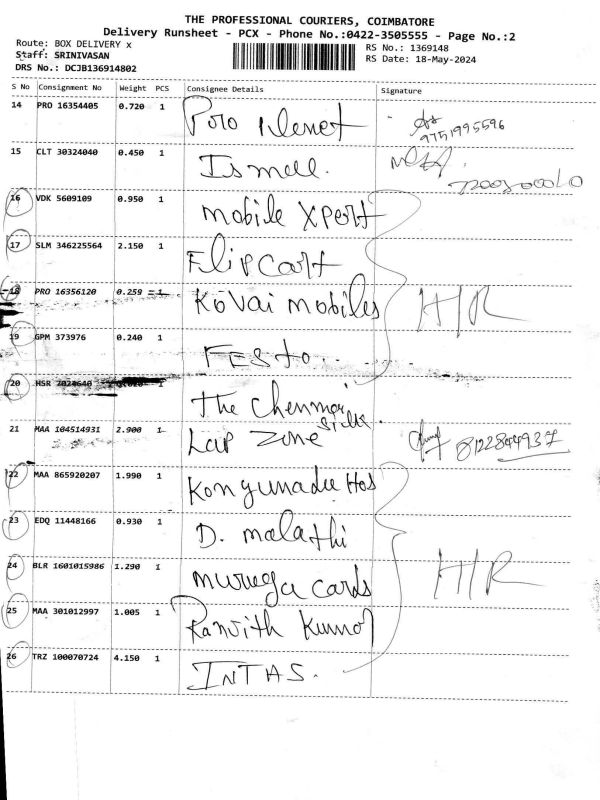 THE PROFESSIONAL COURIERS, COIMBATORE
Delivery Runsheet - PCX - Phone No.:0422-3505555 - Page No.:2
Route: BOX DELIVERY x
Staff: SRINIVASAN
DRS No.: DCJB136914802
RS No.: 1369148
RS Date: 18-May-2024
S No Consignment No Weight PCS Consignee Details Signature
14 PRO 16354405 0.720 1 9751995596
15 CLT 30324040 0.450 1 Ismell.
16 VDK 5609109 0.950 1 mobile Xpert
17 SLM 346225564 2.150 1 FlipCart
18 PRO 16356120 0.259 1 Kovai mobiles H/R
19 GPM 373976 0.240 1 FESto..
20 HSR 1 The Chennai Silks.
21 MAA 104514931 2.900 1 Lap Zone 8122844937
22 MAA 865920207 1.990 1 Kongunadu Hos
23 EDQ 11448166 0.930 1 D. malathi
24 BLR 1601015986 1.290 1 muruga cards H/R
25 MAA 301012997 1.005 1 Ranjith Kumar
26 TRZ 100070724 4.150 1 INTAS.